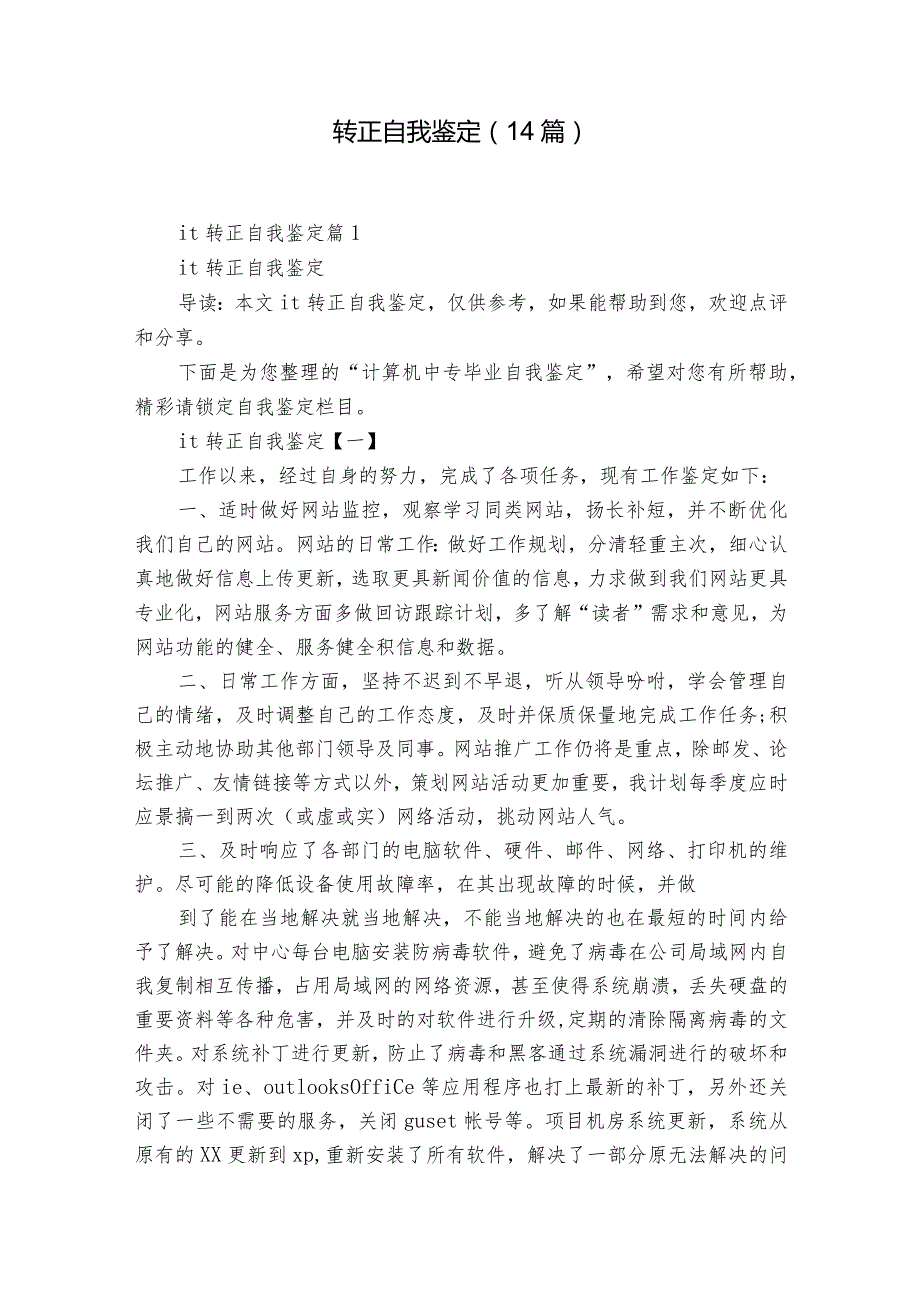 转正自我鉴定（14 篇）
it 转正自我鉴定篇 1
it 转正自我鉴定
导读：本文 it 转正自我鉴定，仅供参考，如果能帮助到您，欢迎点评
和分享。
下面是为您整理的“计算机中专毕业自我鉴定”，希望对您有所帮助，
精彩请锁定自我鉴定栏目。
it 转正自我鉴定【一】
工作以来，经过自身的努力，完成了各项任务，现有工作鉴定如下：
一、适时做好网站监控，观察学习同类网站，扬长补短，并不断优化
我们自己的网站。网站的日常工作：做好工作规划，分清轻重主次，细心认
真地做好信息上传更新，选取更具新闻价值的信息，力求做到我们网站更具
专业化，网站服务方面多做回访跟踪计划，多了解“读者”需求和意见，为
网站功能的健全、服务健全积信息和数据。
二、日常工作方面，坚持不迟到不早退，听从领导吩咐，学会管理自
己的情绪，及时调整自己的工作态度，及时并保质保量地完成工作任务;积
极主动地协助其他部门领导及同事。网站推广工作仍将是重点，除邮发、论
坛推广、友情链接等方式以外，策划网站活动更加重要，我计划每季度应时
应景搞一到两次（或虚或实）网络活动，挑动网站人气。
三、及时响应了各部门的电脑软件、硬件、邮件、网络、打印机的维
护。尽可能的降低设备使用故障率，在其出现故障的时候，并做
到了能在当地解决就当地解决，不能当地解决的也在最短的时间内给
予了解决。对中心每台电脑安装防病毒软件，避免了病毒在公司局域网内自
我复制相互传播，占用局域网的网络资源，甚至使得系统崩溃，丢失硬盘的
重要资料等各种危害，并及时的对软件进行升级,定期的清除隔离病毒的文
件夹。对系统补丁进行更新，防止了病毒和黑客通过系统漏洞进行的破坏和
攻击。对 ie、outlooksOffiCe 等应用程序也打上最新的补丁，另外还关
闭了一些不需要的服务，关闭 guset 帐号等。项目机房系统更新，系统从
原有的 XX 更新到 xp,重新安装了所有软件，解决了一部分原无法解决的问